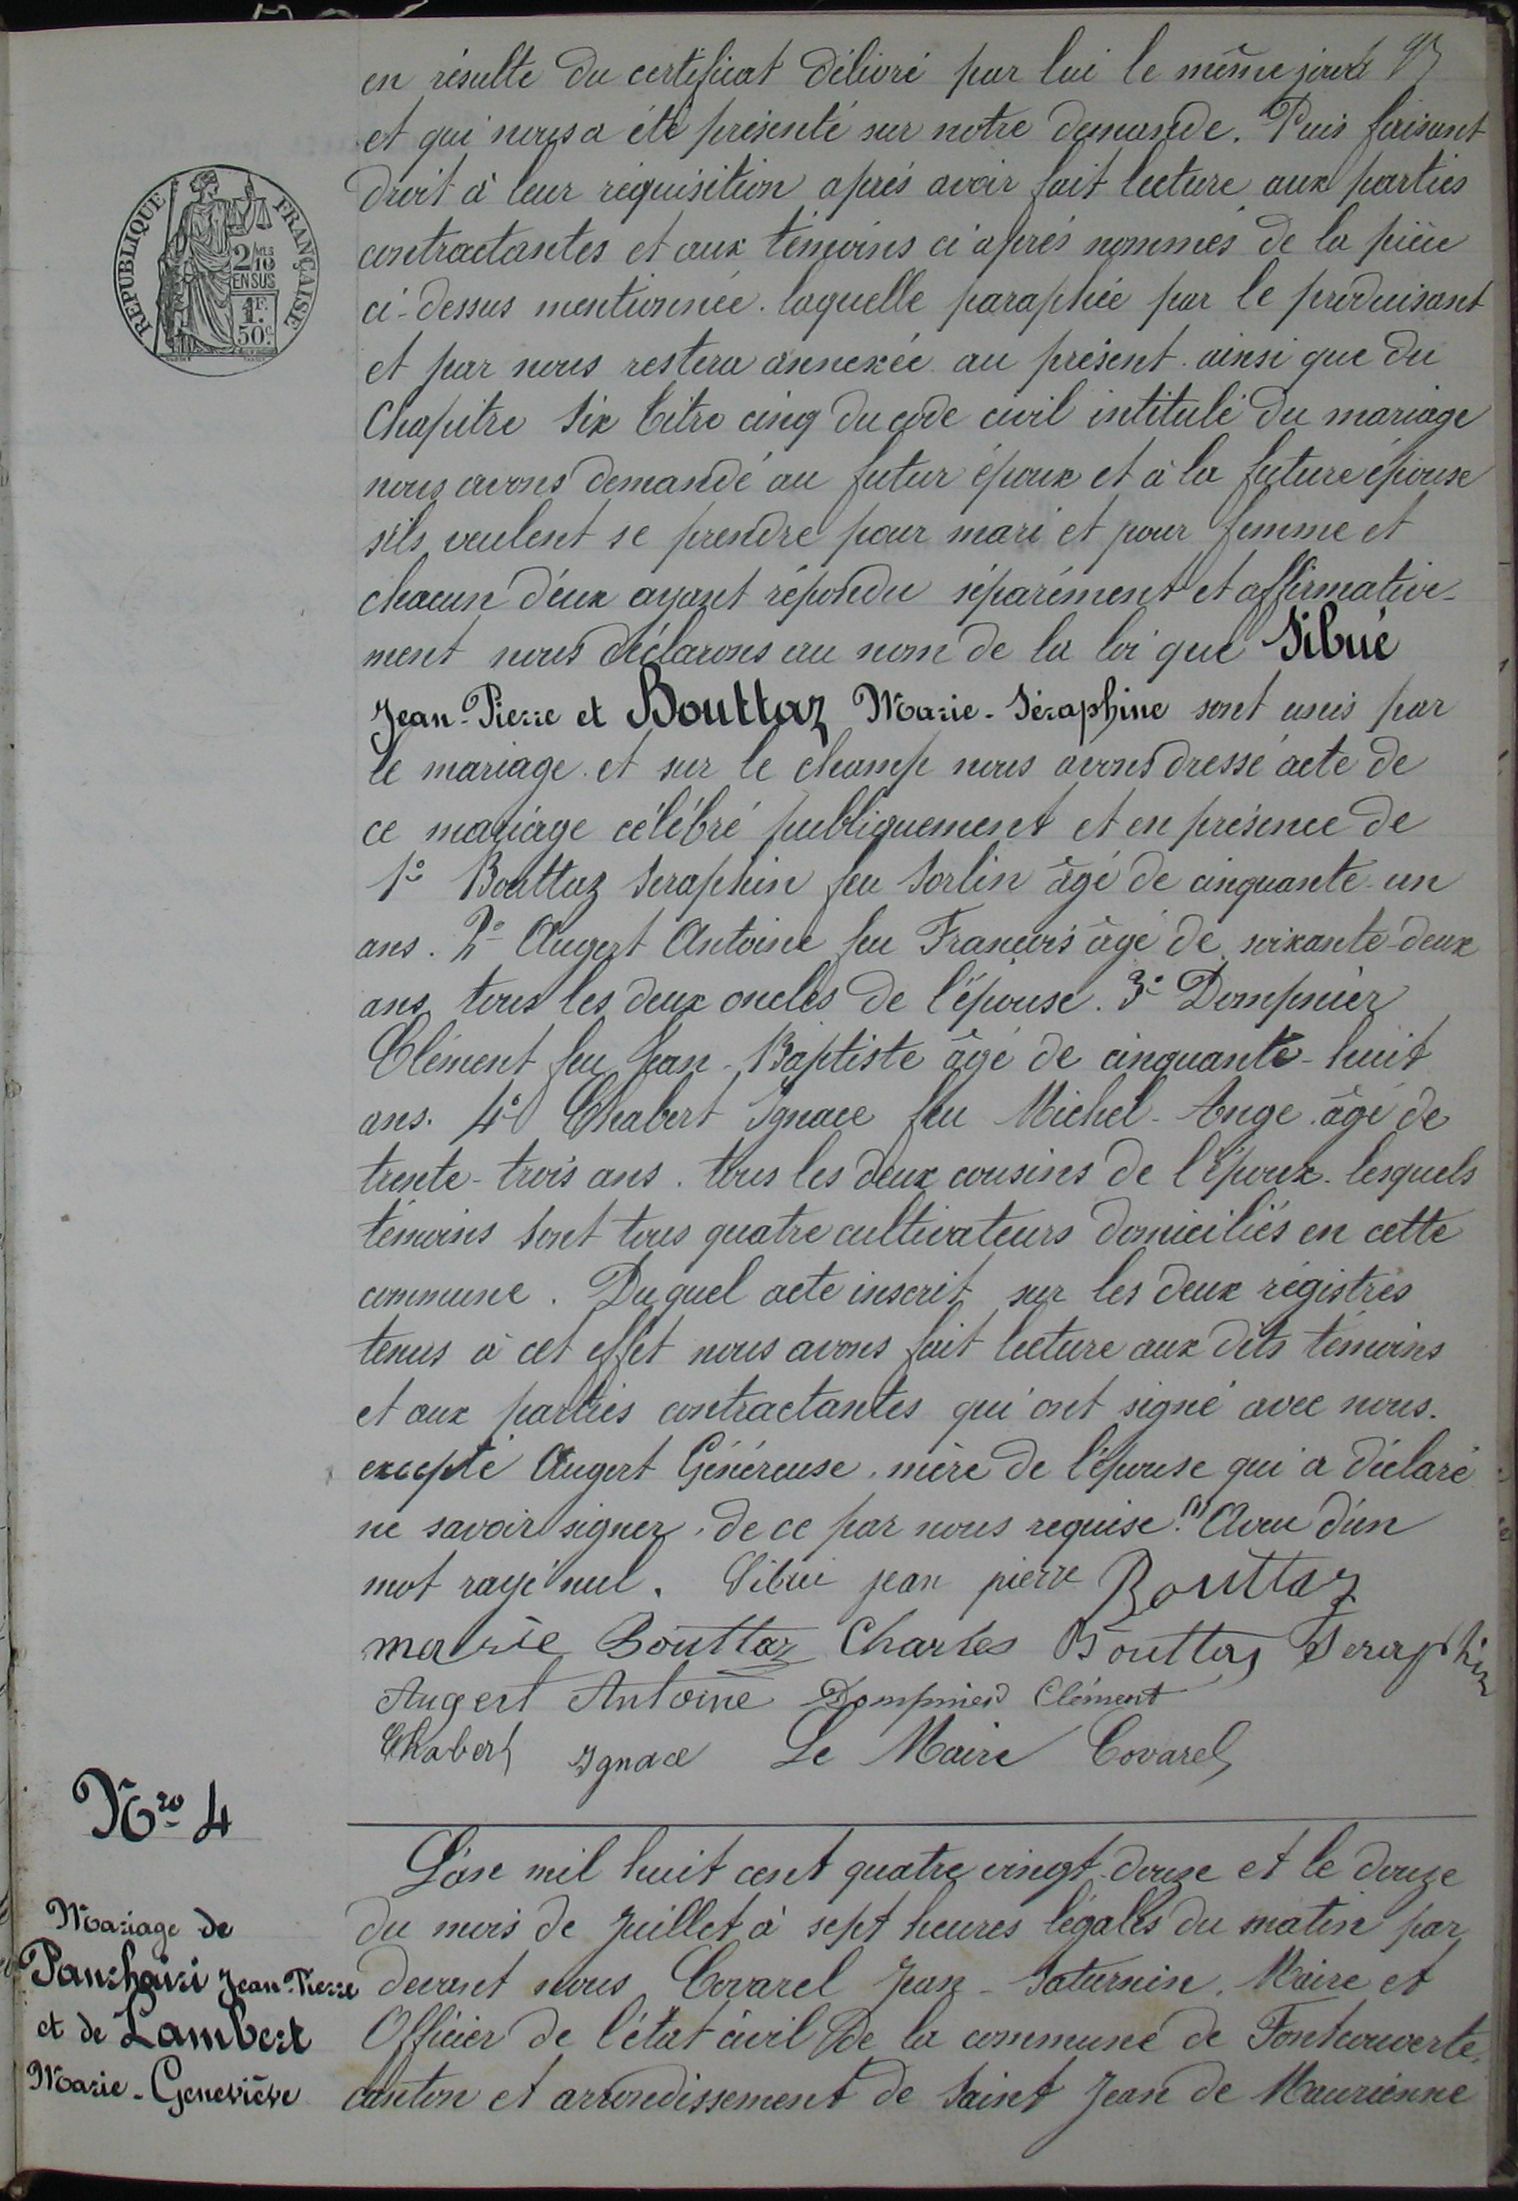 en résulte du certificat délivré par lui le même jour
et qui nous a été présenté sur notre demande. Puis faisant
droit à leur réquisition après avoir fait lecture aux parties
contractantes et aux témoins ci après nommés de la pièce
ci-dessus mentionnée. laquelle paraphée par le produisant
et par nous restera annexée au présent. ainsi que du
Chapitre six titre cinq du code civil intitulé du mariage
nous avons demandé au futur époux et à la future épouse
s'ils veulent se prendre pour mari et pour femme et
chacun d'eux ayant répondu séparément et affirmative-
ment nous déclarons au nom de la loi que Sibué
Jean-Pierre et Bouttaz Marie-Séraphine sont unis par
le mariage. et sur le champ nous avons dressé acte de
ce mariage célébré publiquement et en présence de
1° Bouttaz Séraphin feu Sorlin âgé de cinquante-un
ans. 2° Augert Antoine feu François âgé de soixante-deux
ans tous les deux oncles de l'épouse. 3° Dompnier
Clément feu Jean-Baptiste âgé de cinquante-huit
ans. 4° Chabert Ignace feu Michel-Ange. âgé de
trente-trois ans. tous les deux cousins de l'époux. lesquels
témoins sont tous quatre cultivateurs domiciliés en cette
commune. Duquel acte inscrit sur les deux régistres
tenus à cet effet nous avons fait lecture aux dits témoins
et aux parties contractantes qui ont signé avec nous.
excepté Augert Généreuse. mère de l'épouse qui a déclaré
ne savoir signer. de ce par nous requise. (1) d'un
mot rayé nul. Sibué jean pierre Bouttaz
marie Bouttaz Charles Bouttaz Seraphin
Augert Antoine Dompnier Clément
Chabert Ignace Le Maire Covarel
REPUBLIQUE FRANÇAISE
2/10 EN SUS
1F. 50c.
Nro 4
Mariage de
Panchairi Jean-Pierre
et de Lambert
Marie-Geneviève
L'an mil huit cent quatre vingt-douze et le douze
du mois de Juillet à sept heures légales du matin par
devant nous Covarel Jean-Saturnin. Maire et
Officier de l'état civil de la commune de Fontcouverte,
canton et arrondissement de Saint Jean de Maurienne